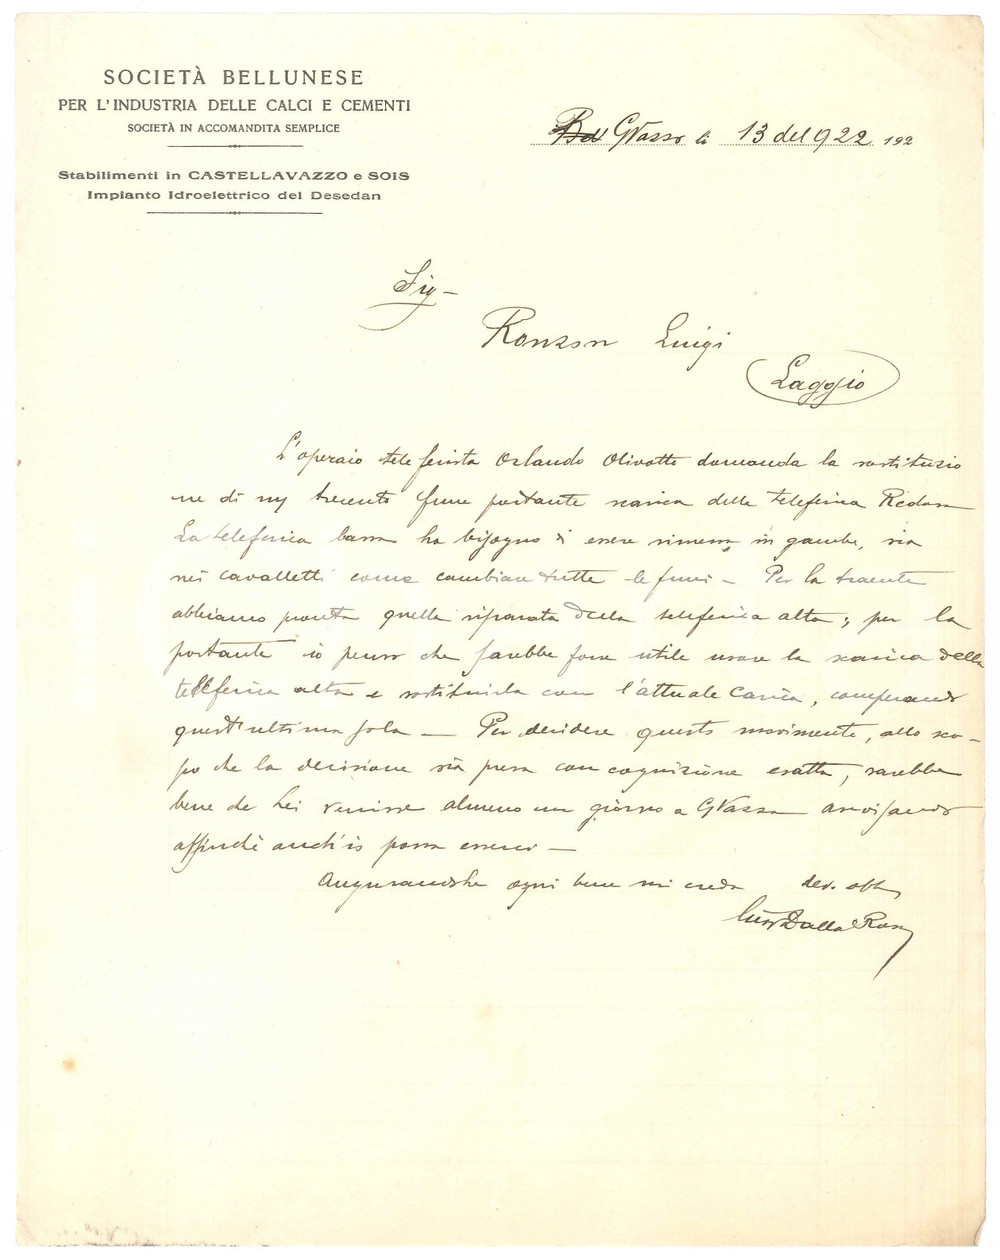 SOCIETÀ BELLUNESE
PER L'INDUSTRIA DELLE CALCI E CEMENTI
SOCIETÀ IN ACCOMANDITA SEMPLICE
Stabilimenti in CASTELLAVAZZO e SOIS
Impianto Idroelettrico del Desedan
li 13 del 922 192
Sig
Ronzon Luigi
Laggio
L'operaio teleferista Orlando Olivotto domanda la sostituzio
ne di fune portante scarica della teleferica
La teleferica bassa ha bisogno di essere rimessa in gambe, sia
nei cavalletti come cambiare tutte le funi – Per la traente
abbiamo pronta quella riparata della teleferica alta; per la
portante io penso che sarebbe forse utile usare la scarica della
teleferica alta e sostituirla con l'attuale carica, comperando
quest'ultima sola — Per decidere questo movimento, allo sco-
po che la decisione sia presa con cognizione esatta, sarebbe
bene che Lei venisse almeno un giorno a avvisando
affinchè anch'io possa esserci —
Augurandole ogni bene mi creda dev. obb
Dalla Rosa